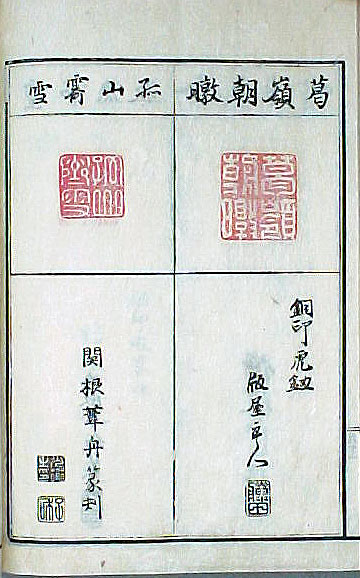 葛嶺朝暾
孤山霽雪
葛嶺朝暾
孤山霽雪
銅印虎鈕
版屋主人
関根
丹篆刻